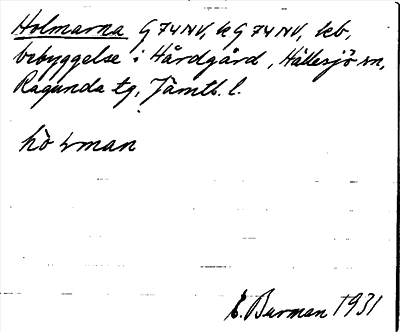 Holmarna G 74 NV, k G 74 NV, leb,
bebyggelse i Hårdgård, Hällesjö sn,
Ragunda tg, Jämtl. l.
E. Burman 1931